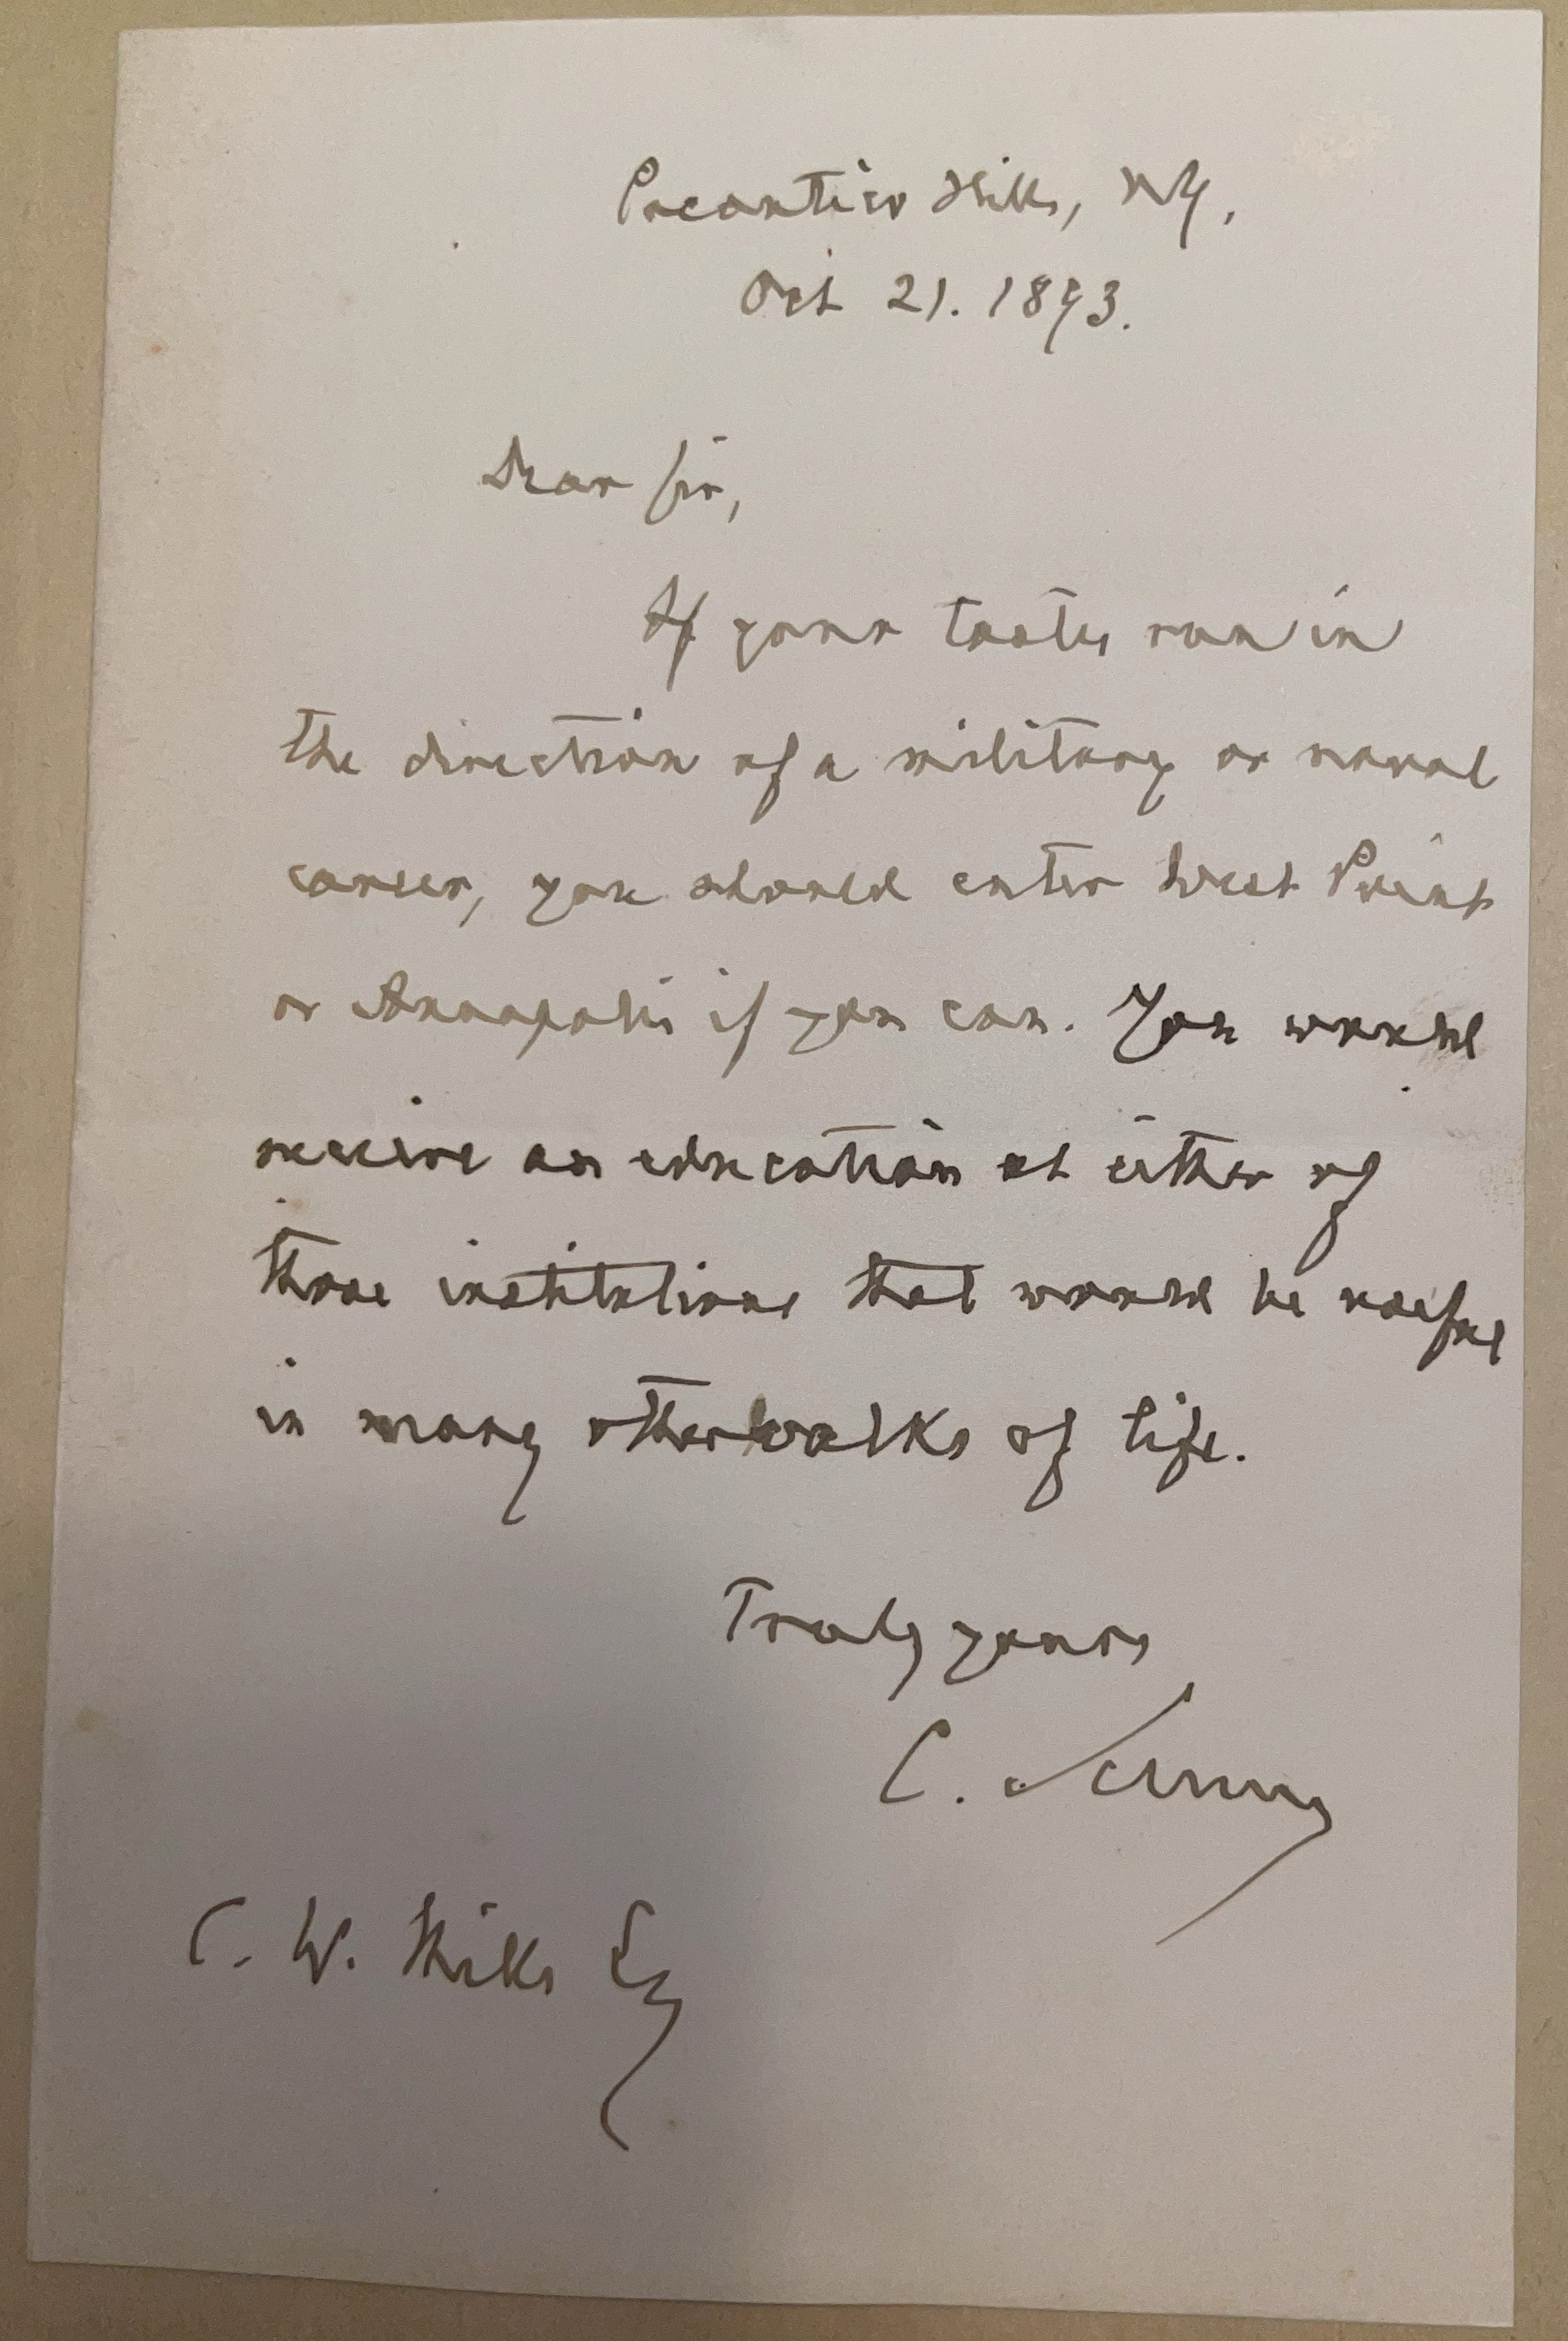 Pocantico Hills, NY.
Oct 21. 1893.
Dear Sir,
If your tastes run in
the direction of a military or naval
career, you should enter West Point
or Annapolis if you can. You would
receive an education at either of
those institutions that would be useful
in many other walks of life.
Truly yours
C.
C. W. Esq